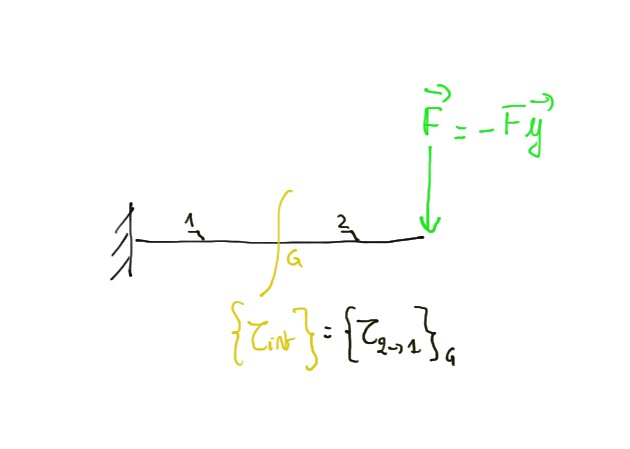 F⃗ = -F y⃗
1
2
G
{τ_int} = {τ_2→1}_G